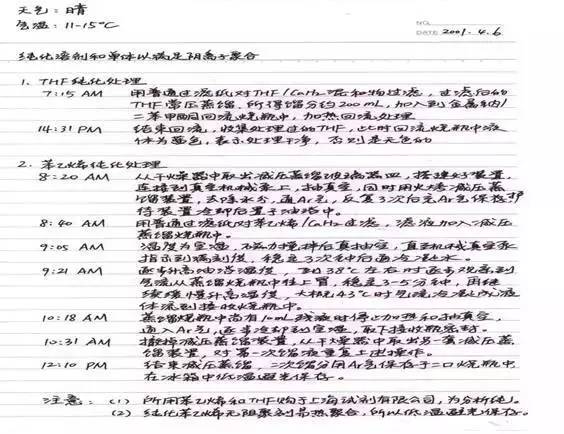 天气：晴
气温：11-15°C
NO.
DATE 2001.4.6
纯化溶剂和单体以满足阴离子聚合
1. THF纯化处理
7:15 AM 用普通过滤纸对THF/CaH₂混和物过滤，过滤后的
THF常压蒸馏，所得馏分约200mL，加入到金属钠/
二苯甲酮回流烧瓶中，加热回流处理
14:31 PM 结束回流，收集处理过的THF，此时回流烧瓶中液
体为蓝色，表示处理干净，否则是无色的
2. 苯乙烯纯化处理
8:20 AM 从干燥器中取出减压蒸馏玻璃器皿，搭建好装置，
连接到真空机械泵上，抽真空，同时用火烤减压蒸
馏装置，去除水分，通Ar气，反复3次后充Ar气保存
待装置冷却后置于油浴中。
8:40 AM 用普通过滤纸对苯乙烯/CaH₂过滤，滤液加入减压
蒸馏烧瓶中。
9:05 AM 温度为室温，不磁力搅拌后真抽空，直至机械真空泵
指示到满刻度，稳定3次钟后通冷凝水。
9:21 AM 逐步升高油浴温度，到38°C左右时逐步观察到
气流从蒸馏烧瓶中往上冒，稳定3-5分钟，再继
续缓慢升高温度，大概43°C时气流冷凝成液
体流到接收烧瓶中。
10:18 AM 蒸馏烧瓶中尚有10mL残液时停止加热和抽真空，
通入Ar气，逐步冷却到室温，取下接收瓶密封。
10:31 AM 撤掉减压蒸馏装置，从干燥器中取出另一套减压蒸
馏装置，对第一次馏液重复上述操作。
12:10 PM 结束减压蒸馏，二次馏分用Ar气保存于二口烧瓶中
在冰箱中低温避光保存。
注意：(1) 所用苯乙烯和THF购于上海试剂有限公司，为分析纯。
(2) 纯化苯乙烯无阻聚剂易热聚合，所以低温避光保存。